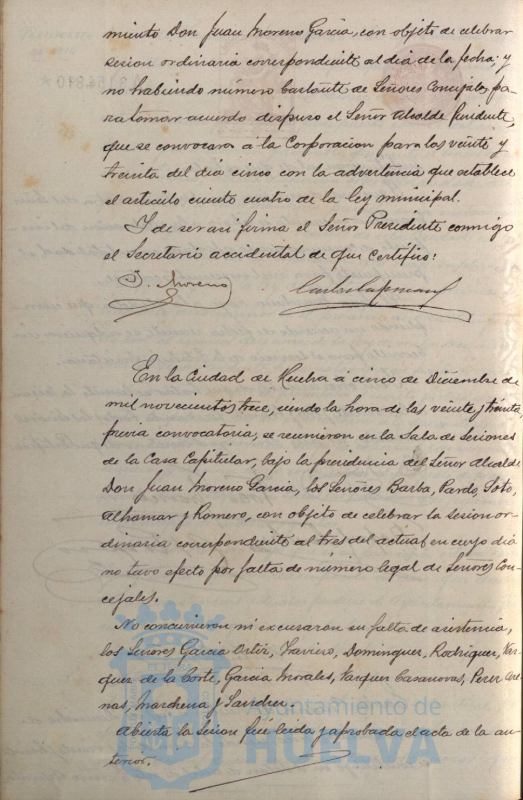 miento Don Juan Moreno Garcia, con objeto de celebrar
sesion ordinaria correspondiente al dia de la fecha; y
no habiendo número bastante de Señores Concejales pa-
ra tomar acuerdo dispuso el Señor Alcalde Presidente,
que se convocara á la Corporacion para las veinte y
treinta del dia cinco con la advertencia que establece
el artículo ciento cuatro de la ley municipal.
Y de ser asi firma el Señor Presidente conmigo
el Secretario accidental de que certifico:
J. Moreno
En la Ciudad de Huelva á cinco de Diciembre de
mil novecientos trece, siendo la hora de las veinte y treinta,
previa convocatoria, se reunieron en la Sala de Sesiones
de la Casa Capitular, bajo la presidencia del Señor Alcalde
Don Juan Moreno Garcia, los Señores Barba, Pardo, Soto,
Alhamar y Romero, con objeto de celebrar la sesion or-
dinaria correspondiente al tres del actual en cuyo dia
no tuvo efecto por falta de número legal de Señores Con-
cejales.
No concurrieron ni excusaron su falta de asistencia,
los Señores Garcia Ortiz, Dominguez, Rodriguez, Vaz-
quez de la Corte, Garcia Morales, Vazquez Casanovas, Perez
nas, Marchena y
Abierta la sesion fué leida y aprobada el acta de la an-
terior.
Ayuntamiento de
HUELVA